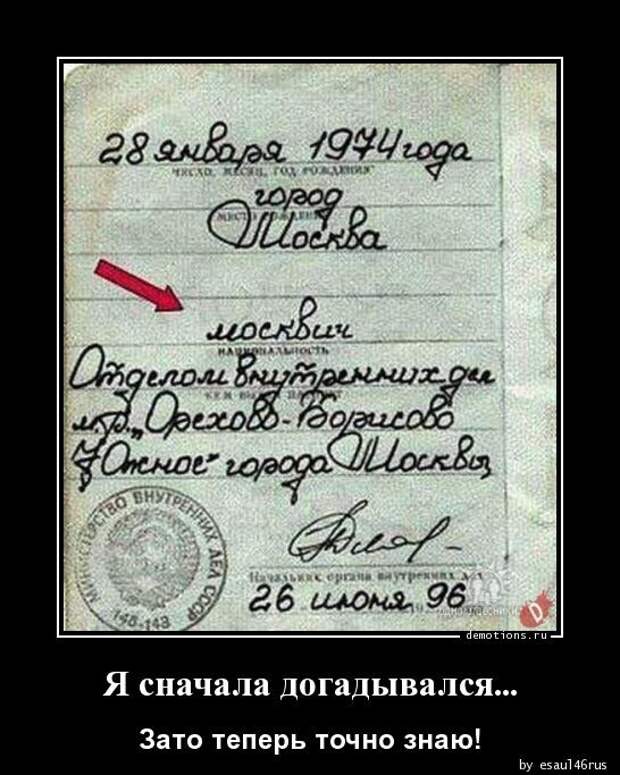 28 января 1974 года
ЧИСЛО, МЕСЯЦ, ГОД РОЖДЕНИЯ
город
МЕСТО РОЖДЕНИЯ
Москва
москвич
НАЦИОНАЛЬНОСТЬ
Отделом внутренних дел
КЕМ ВЫДАН ПАСПОРТ
м.р. „Орехово-Борисово
Южное" города Москвы
МИНИСТЕРСТВО ВНУТРЕННИХ ДЕЛ СССР
148-143
Начальник органа внутренних дел
26 июня 96
demotions.ru
Я сначала догадывался...
Зато теперь точно знаю!
by esaul46rus